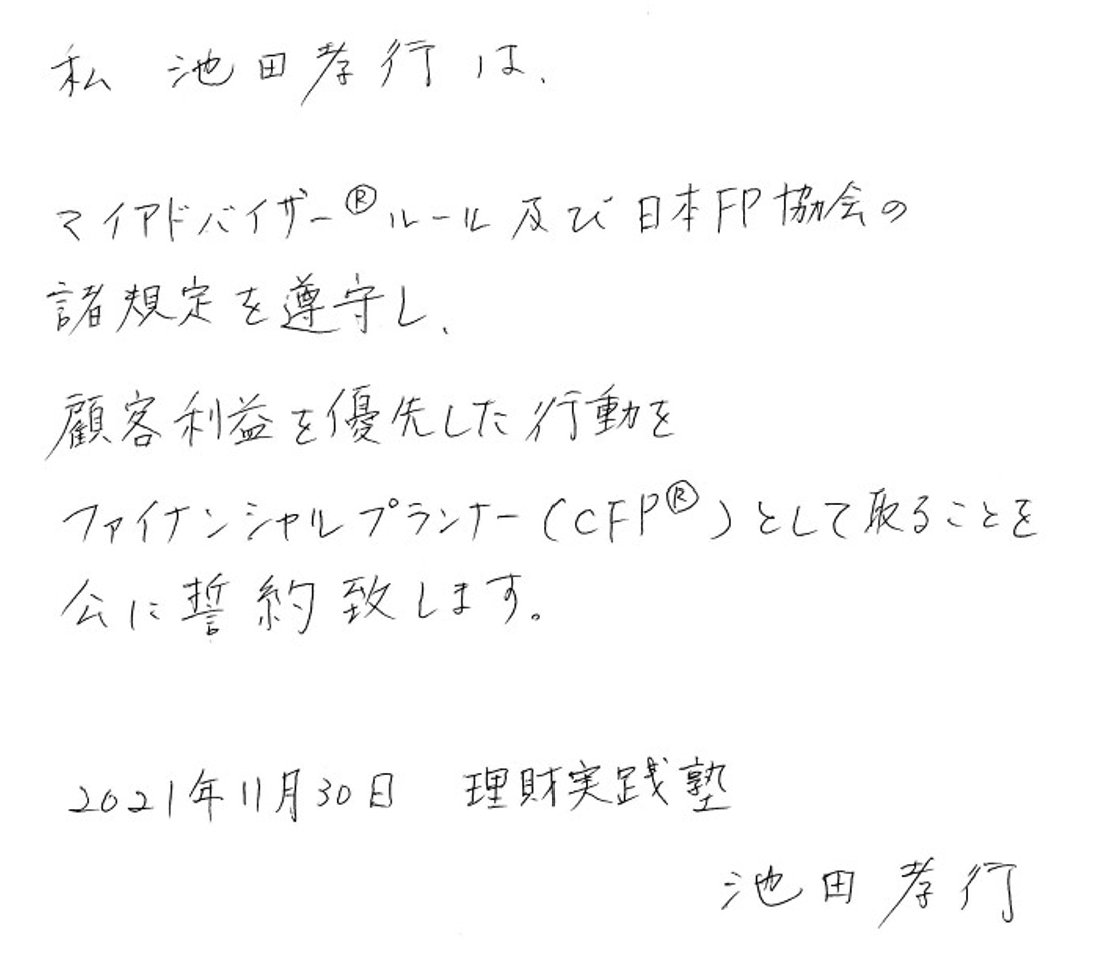 私 池田孝行は、
マイアドバイザー®ルール及び日本FP協会の
諸規定を遵守し、
顧客利益を優先した行動を
ファイナンシャルプランナー(CFP®)として取ることを
公に誓約致します。
2021年11月30日 理財実践塾
池田孝行